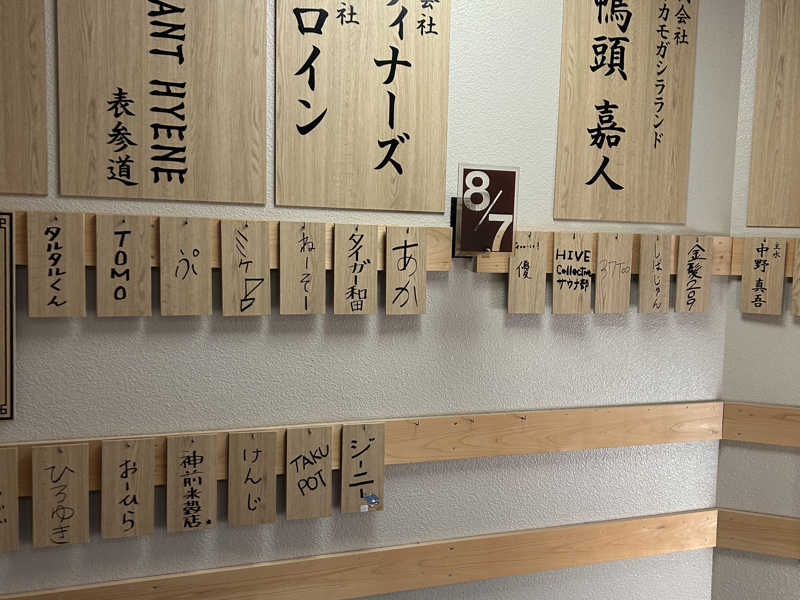 ANT HYENE
表参道
会社
ィナーズ
社
ロイン
会社
カモガシラランド
鴨頭 嘉人
8/7
タルタルくん
TOMO
ぷ
ねーそー
タイガー和田
あか
優
HIVE
Collective
サウナ部
しばしゅん
金髪209
主水
中野 真吾
ひろゆき
おーひら
神前米農店
けんじ
TAKU
POT
ジーニー